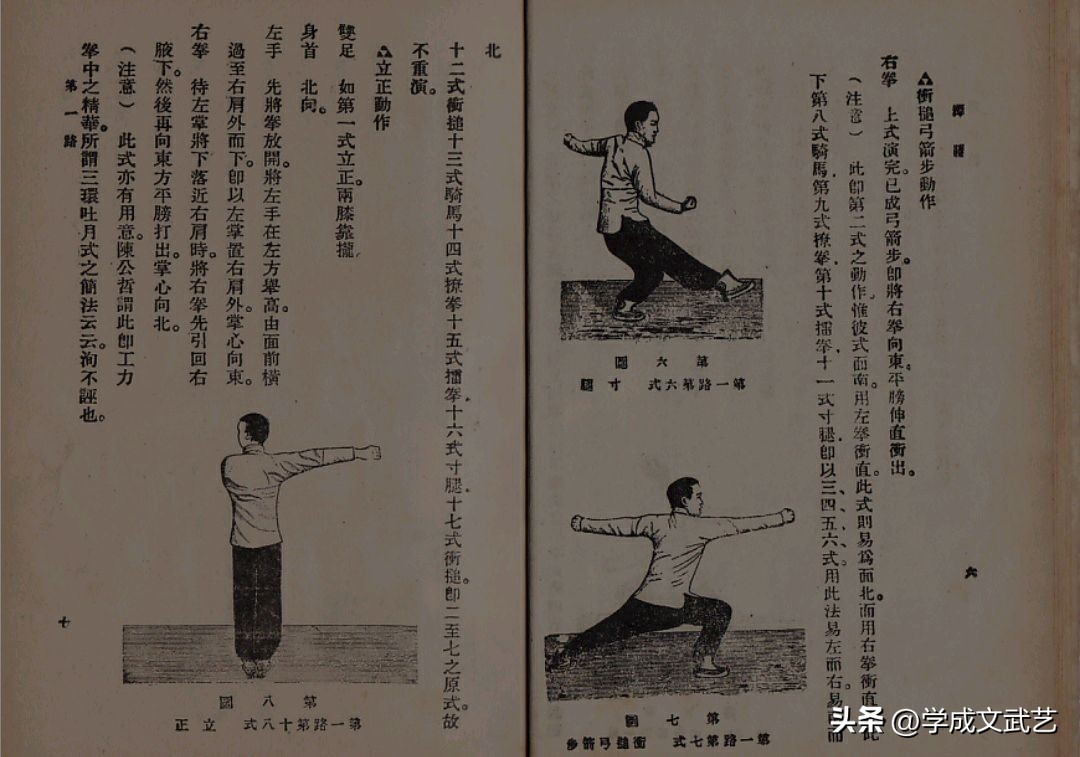 腿
六
衝搥弓箭步動作
右拳 上式演完。已成弓箭步。即將右拳向東。平膀伸直衝出。
（注意） 此即第二式之動作。惟彼式面南。用左拳衝直。此式則易爲面北。而用右拳衝直 此
下第八式騎馬、第九式撩拳、第十式擂拳、十一式寸腿、即以三、四、五、六式。用此法易左而右。易 而
第六圖
第一路第六式 寸腿
第七圖
第一路第七式 衝搥弓箭步
北
十二式衝搥十三式騎馬十四式撩拳十五式擂拳、十六式寸腿、十七式衝搥。即二至七之原式。故
不重演。
立正動作
雙足 如第一式立正。兩膝靠攏。
身首 北向。
左手 先將拳放開。將左手在左方舉高。由面前橫
過至右肩外而下。卽以左掌置右肩外。掌心向東。
右拳 待左掌將下落近右肩時。將右拳先引回右
腋下。然後再向東方平膀打出。掌心向北。
（注意） 此式亦有用意。陳公哲謂此卽工力
拳中之精華。所謂三環吐月式之簡法云云。洵不誣也。
第一路
七
第八圖
第一路第十八式 立正
头条 @学成文武艺